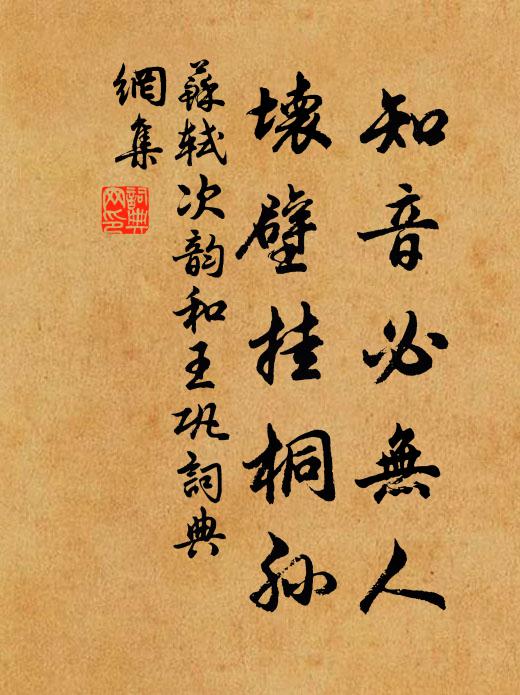 知音必無人
壞壁挂桐孫
蘇軾次韵和王巩詞典
網集
詞典
网印